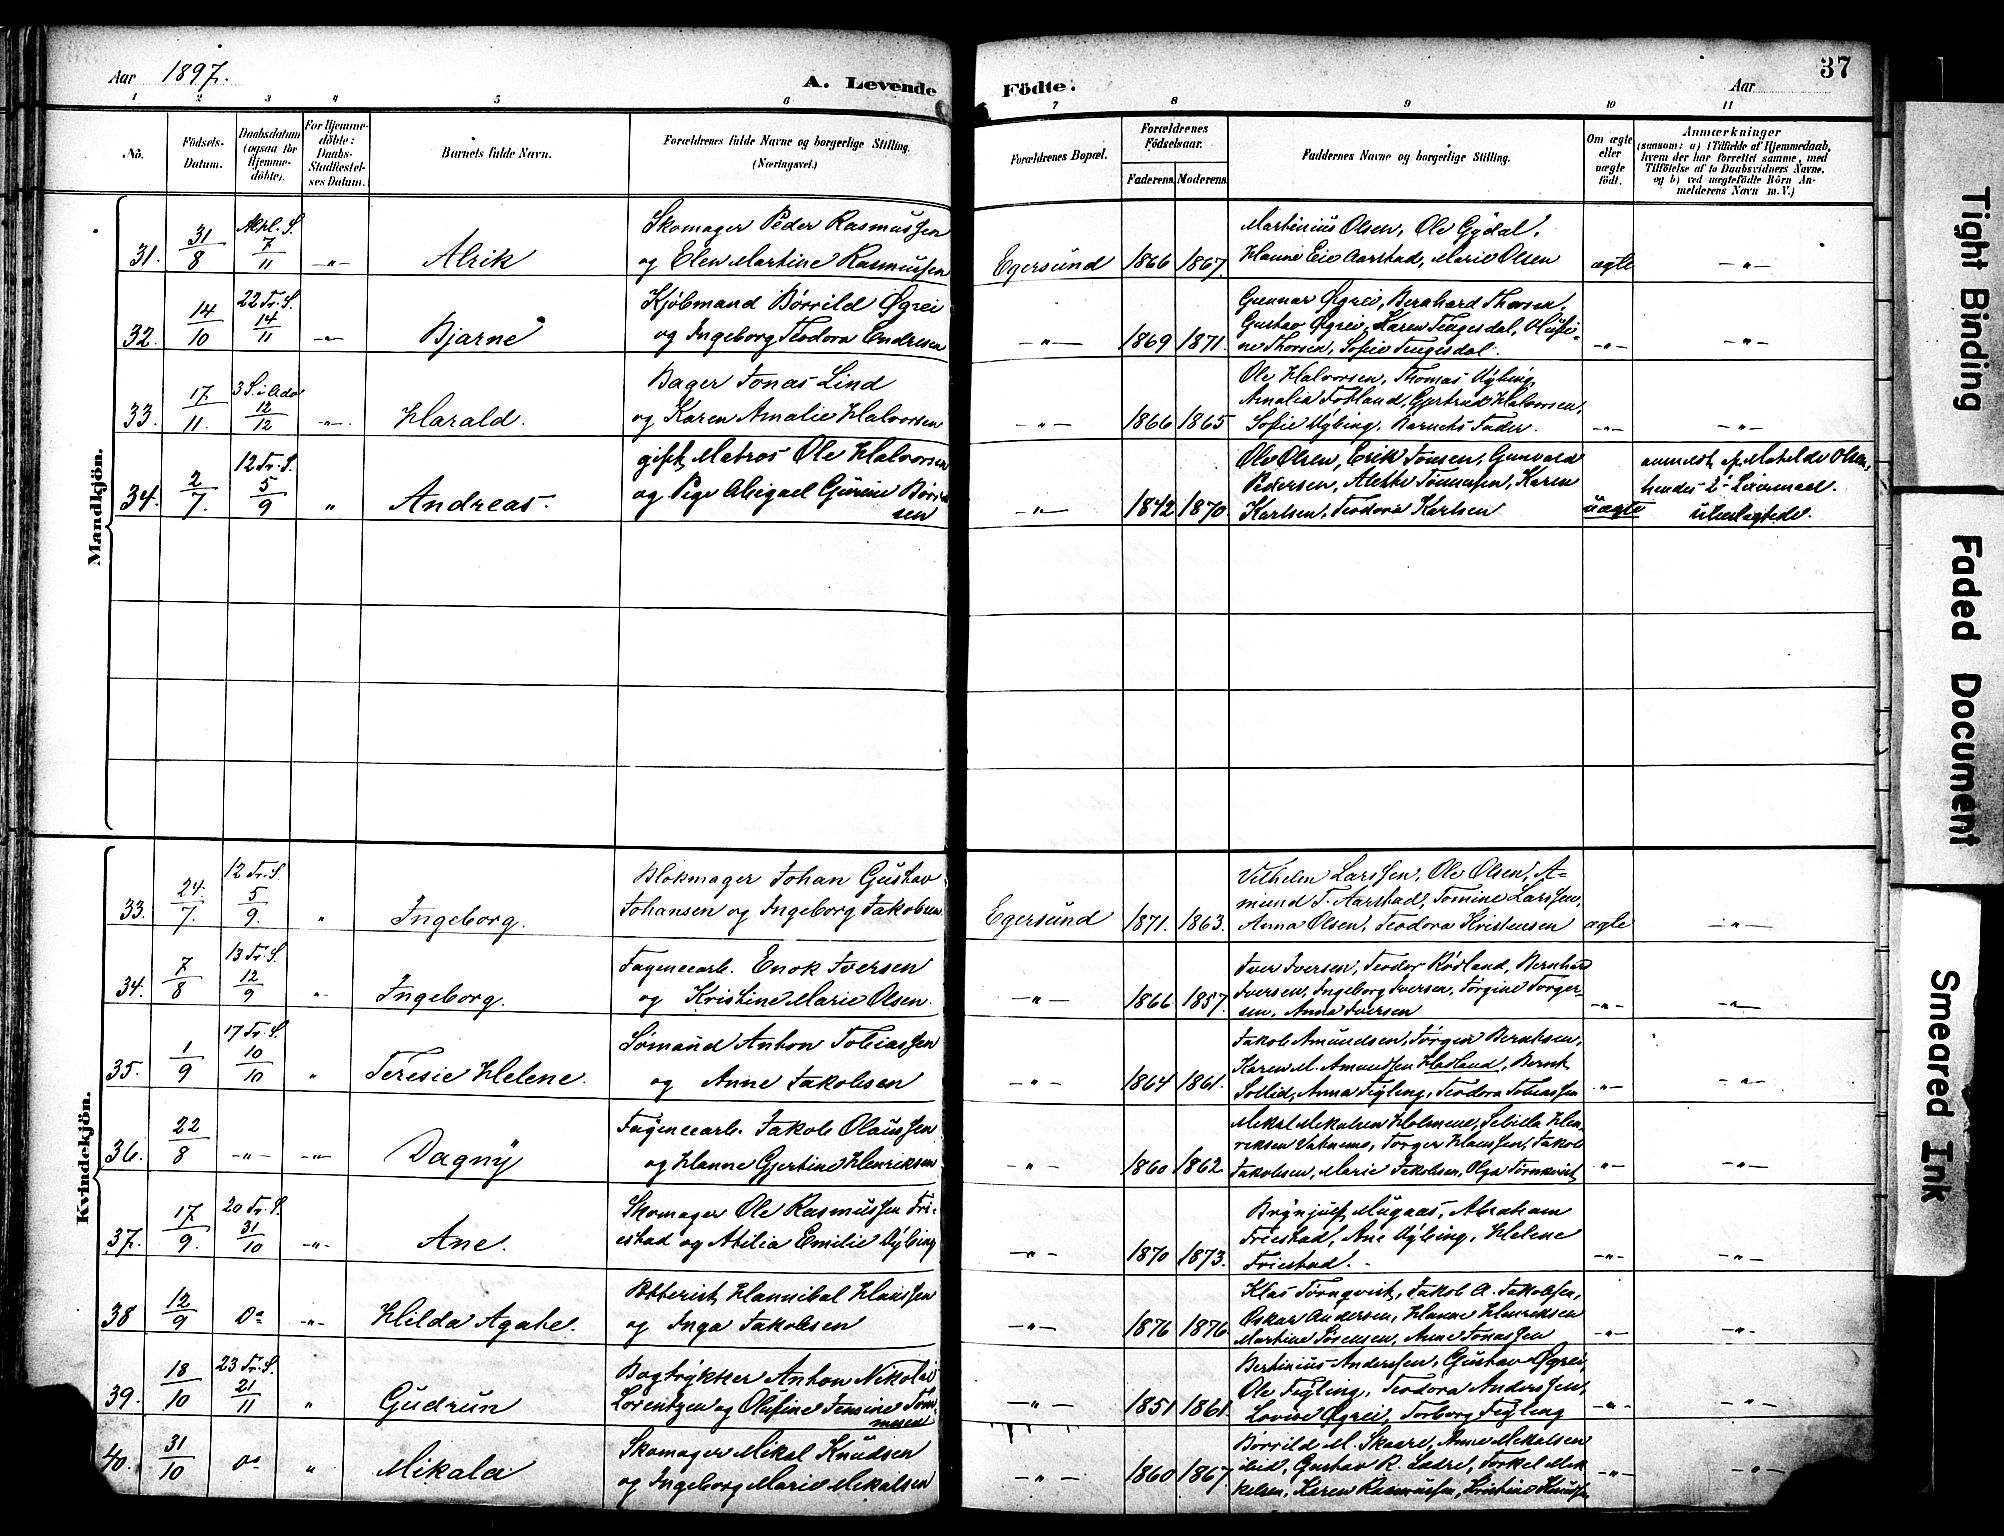 Aar 1897.
A. Levende Födte.
Aar
37
1 2 3 4 5 6 7 8 9 10 11
No.
Födsels-Datum.
Daabsdatum (ogsaa for Hjemmedöbte).
For Hjemmedöbte: Daabs-Stadfæstelses Datum.
Barnets fulde Navn.
Forældrenes fulde Navne og borgerlige Stilling.
(Næringsvei.)
Forældrenes Bopæl.
Forældrenes Födselsaar.
Faderens. Moderens.
Faddernes Navne og borgerlige Stilling.
Om ægte eller uægte födt.
Anmærkninger
(saasom: a) i Tilfælde af Hjemmedaab, hvem der har forrettet samme, med Tilföielse af to Daabsvidners Navne, og b) ved uægtefödte Börn Anmelderens Navn m. V.)
Mandkjön.
31. 31/8 Akpl. S. 7/11 -"- Alrik
Skomager Peder Rasmussen
og Elen Martine Rasmussen
Egersund 1866 1867.
Martinius Olsen, Ole Gydal,
Hanne Eie Aarstad, Marie Olsen
ægte -"-
32. 14/10 22 Tr. S. 14/11 -"- Bjarne
Kjöbmand Børrild Øgrei
og Ingeborg Teodora Endresen
-"- 1869 1871.
Gunnar Øgrei, Bernhard Thorsen,
Gustav Øgrei, Karen Tengesdal, Olufi-
ne Thorsen, Sofie Tengesdal.
-"- -"-
33. 17/11. 3 S. i Adv 12/12 -"- Harald.
Bager Jonas Lind
og Karen Amalie Halvorsen
-"- 1866 1865
Ole Halvorsen, Thomas Nybing,
Amalia Fotland, Gertrud Halvorsen,
Sofie Nybing, Barnets Fader.
-"- -"-
34. 2/7. 12 Tr. S. 5/9 " Andreas.
gift Matros Ole Halvorsen
og Pige Abigael Gurine Børre
sen
-"- 1842 1870
Ole Olsen, Erik Jonsen, Gunvald
Pedersen, Alette Tønnesen, Karen
Karlsen, Teodora Karlsen
uægte
anmeldt af Matilde Olsen,
hendes 2' Leiermaal.
Kvindekjön.
33. 24./7. 12 Tr. S. 5/9. " Ingeborg.
Blokmager Johan Gustav
Johansen og Ingeborg Jakobsen.
Egersund 1871. 1863.
Vilhelm Larssen, Ole Olsen, A-
mund T. Aarstad, Tomine Larssen,
Anna Olsen, Teodora Kristensen
ægte -"-
34. 7/8 13 Tr. S. 12/9 " Ingeborg.
Fayencearb. Enok Iversen
og Kristine Marie Olsen.
-"- 1866 1857.
Iver Iversen, Teodor Rödland, Bernhard
Iversen, Ingeborg Iversen, Torgine Torger-
sen, Anna Iversen
-"- -"-
35. 1/9 17 Tr. S. 10/10 " Teresie Helene.
Sömand Anton Tobiassen
og Anne Jakobsen
-"- 1864 1861.
Jakob Amundsen, Jörgen Berntsen,
Karen M. Amundsen Hadland, Bernt
Sollid, Anna Fegling, Teodora Tobiassen
-"- -"-
36. 22/8 -"- -"- Dagny
Fayencearb. Jakob Olaussen
og Hanne Gjertine Henriksen
-"- 1860 1862.
Mikal Mikalsen Holmene, Sebilla Hen-
riksen Vatnemo, Torger Hanssen, Jakob
Jakobsen, Marie Jakobsen, Olga Tornkvist
-"- -"-
37. 17/9. 20 Tr. S. 31/10 -"- Ane.
Skomager Ole Rasmussen Fri-
estad og Atilia Emilie Nybing
-"- 1870 1873.
Brynjulf Mugaas, Abraham
Friestad, Ane Nybing, Helene
Friestad.
-"- -"-
38 12/9 Do -"- Hilda Agate.
Potterist Hannibal Hanssen
og Inga Jakobsen
-"- 1876 1876.
Klas Törnqvist, Jakob A. Jakobsen,
Oskar Andersen, Hanne Henriksen
Martine Sörensen, Anne Jonassen
-"- -"-
39. 18/10 23 Tr. S. 21/11 " Gudrun
Bogtrykker Anton Nikolai
Lorentzen og Olufine Jensine Tøn-
nesen
-"- 1851 1861.
Bertinius Anderssen, Gustav Øgrei,
Ole Fegling, Teodora Anderssen,
Lovise Øgrei, Torborg Fegling
-"- -"-
40. 31/10 Do " Mikala
Skomager Mikal Knudsen
og Ingeborg Marie Mikalsen
-"- 1860 1867.
Børrild M. Skaare, Anne Mikalsen
ibid, Gustav R. Ladre, Torkel Mik-
kelsen, Karen Rasmussen, Kristine Knudsen
-"- -"-
Tight Binding
Faded Document
Smeared Ink